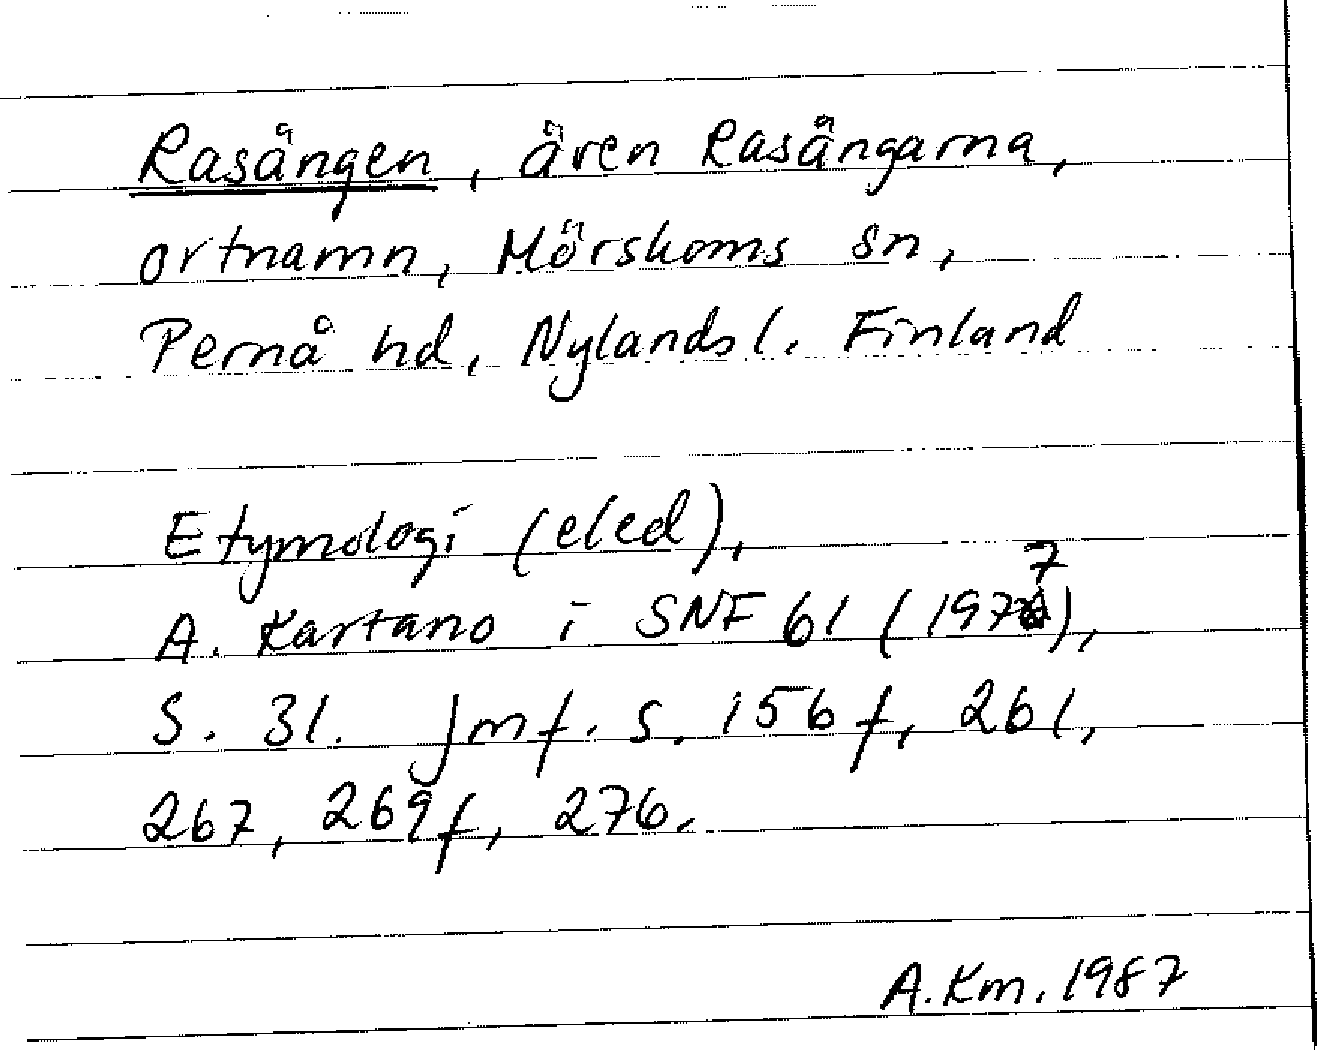 Rasängen, även Rasängarna,
ortnamn, Mörskoms sn,
Pernå hd, Nylands l. Finland
Etymologi (eled),
A. Kartano i SNF 61 (1977),
S. 31. Jmf. s. 156 f, 261,
267, 269 f, 276.
A.Km. 1987